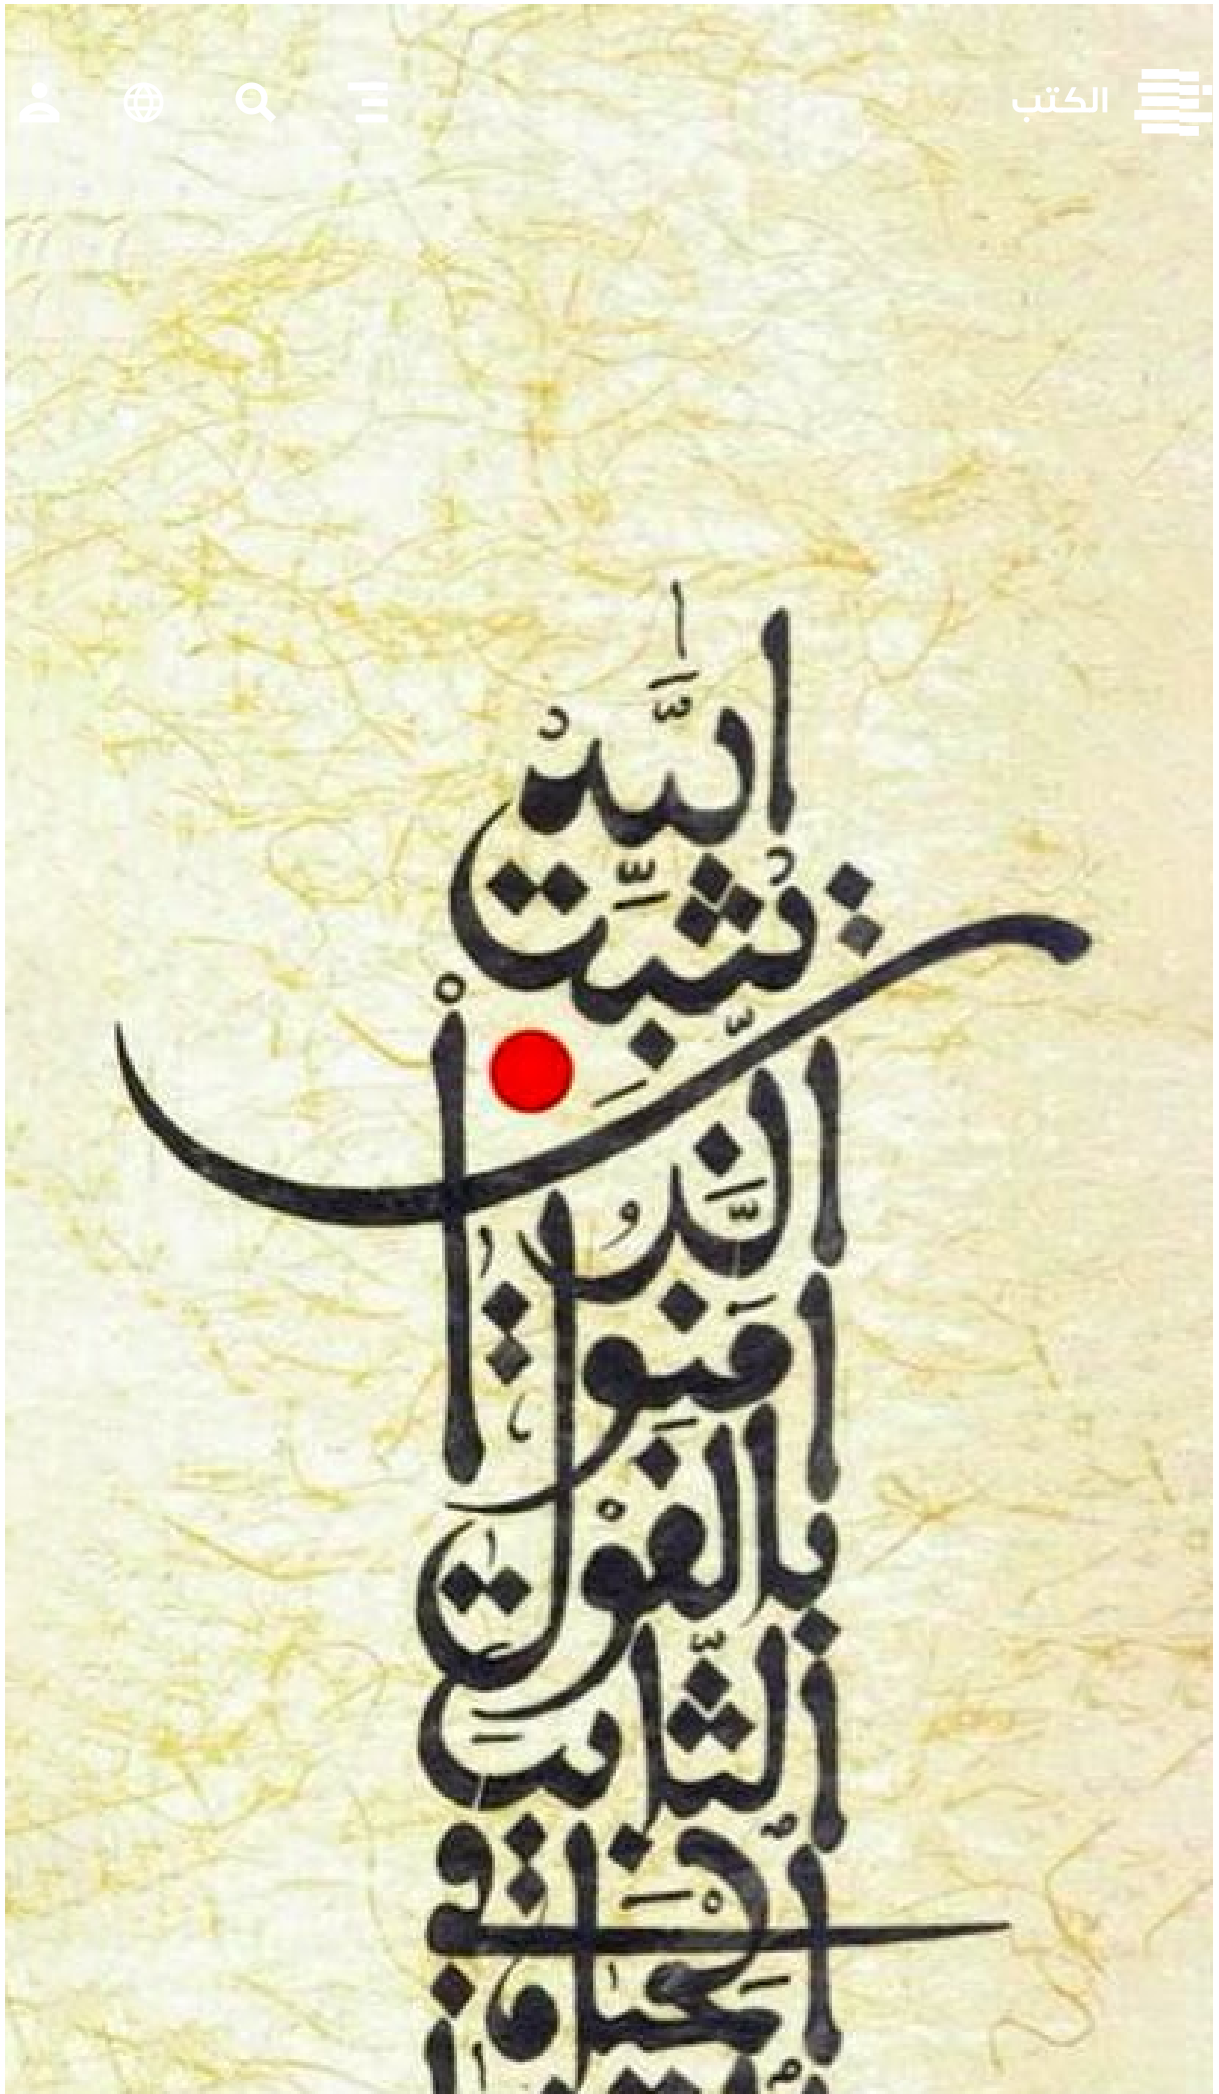 الكتب
يُثَبِّتُ اللَّهُ
الَّذِينَ
آمَنُوا
بِالْقَوْلِ
الثَّابِتِ
فِي الْحَيٰوةِ